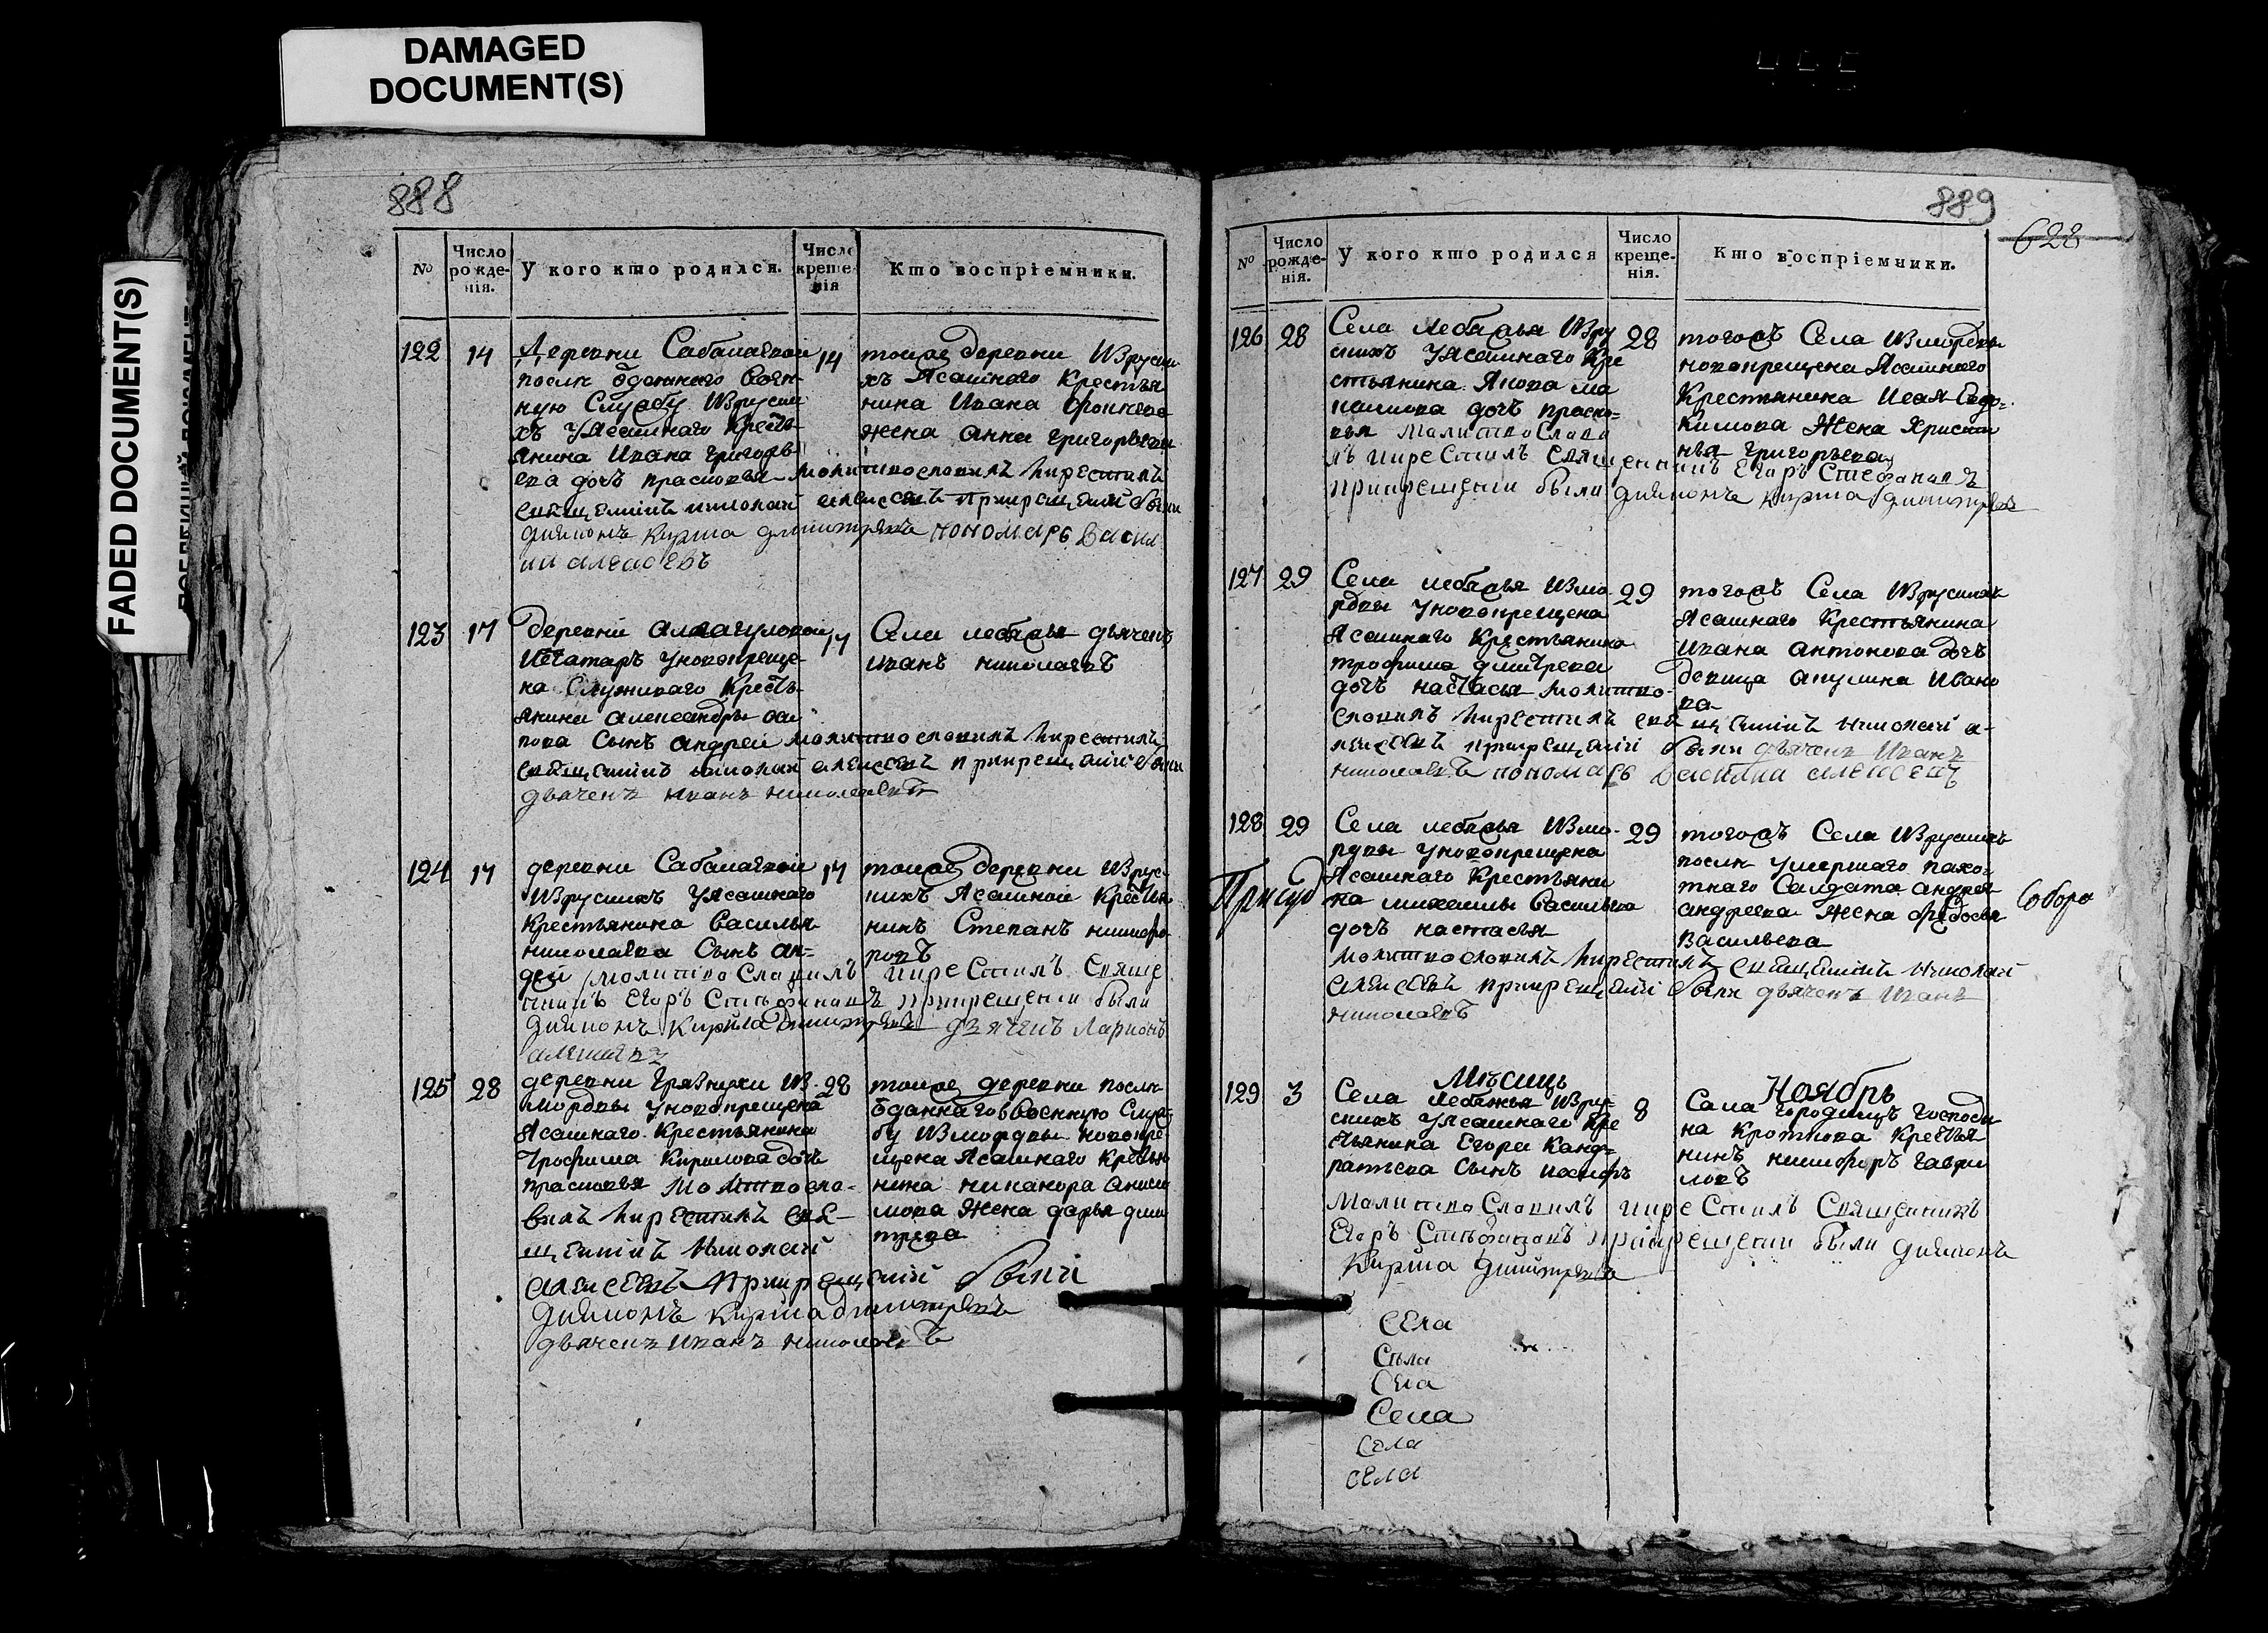 DAMAGED
DOCUMENT(S)
FADED DOCUMENT(S)
888
№
Число рожденія.
У кого кто родился.
Число крещенія
Кто воспріемники.
122 14
Деревни Сабамачкой
послѣ
ную Службу Изруски
хъ Уясашнаго Кресть
янина Ивана Григорь
ева дочь прасковья молитвословилъ икрестилъ
священникъ николай алексеевъ прикрещеніи были
диаконъ Кирила димитриевъ пономарь Васи
лий алексеевъ
14
тоиже деревни Изруски
хъ Ясашнаго Крестья
нина Ивана
жена анна григорьева
123 17
деревни
Изтатаръ уновокреще
на Служиваго Кресть
янина александры
пова Сынъ андреи молитвословилъ икрестилъ
священникъ николай алексеевъ прикрещеніи были
дьячекъ иванъ николаевъ
17
Села лебяжья дьячекъ
иванъ николаевъ
124 17
деревни Сабамачкой
Изрускихъ Уясашнаго
Крестьянина Василья
николаева Сынъ ан=
дреи молитвословилъ икрестилъ Свяще
нникъ Егоръ Стефановъ прикрещении были
диаконъ Кирила Димитриевъ дьячекъ Ларионъ
алексеевъ
17
тоиже деревни Изрус
кихъ Ясашной Крестья
нинъ Степанъ никифо
ровъ
125 28
деревни Грязнухи из
мордвы уновокрещена
Ясашнаго Крестьянина
Трофима Кирилова дочь
прасковья Молитвосло-
вилъ икрестилъ свя-
щенникъ Николай
алексеевъ прикрещеніи были
диаконъ Кирила димитриевъ
дьячекъ иванъ николаевъ
28
тоиже деревни послѣ
ѡданнаго в Военную Служ
бу Измордвы новокре
щена Ясашнаго Крестья
нина никанора аниси
мова Жена дарья дми
трева
889
622
№
Число рожденія.
У кого кто родился
Число крещенія.
Кто воспріемники.
126 28
Села Лебяжья Изру
скихъ Уясашнаго Кре
стьянина Якова ма
ксимова дочь праско=
вья Молитвослови
лъ икрестилъ Священникъ Егоръ Стефановъ
прикрещении были диаконъ Кирила димитриевъ
28
тогожъ Села Измордвы
новокрещена Ясашнаго
Крестьянина Исая Евдо=
кимова Жена Христи
нья Григорьева
127 29
Села лебяжья Измо
рдвы Уновокрещена
Ясашнаго Крестьянина
трофима дмитрева
дочь настасья молитво-
словилъ икрестилъ священникъ николай а-
лексеевъ прикрещеніи были дьячекъ Иванъ
николаевъ пономарь Василий алексеевъ
29
тогожъ Села Изрускихъ
Ясашнаго Крестьянина
Ивана Антонова дочь
девица акулина Ивано
ва
128 29
Села лебяжья Измо-
рдвы Уновокрещена
Ясашнаго Крестьяни
на михаилы Васильева
дочь настасья
молитвословилъ икрестилъ священникъ николай
алексеевъ прикрещеніи были дьячекъ Иванъ
николаевъ
29
тогожъ Села Изрускихъ
послѣ умершаго пахо=
тнаго Салдата андрея
андреева Жена Федосья
Васильева
Собора
Мѣсяцъ Ноябрь
129 3
Села Лебяжья Изру-
скихъ Уясашнаго Кре
стьянина Егора Конд=
ратьева Сынъ иосифъ
Молитвословилъ икрестилъ Священникъ
Егоръ Стефановъ прикрещении были диаконъ
Кирила димитриевъ
8
Села Городищъ Господи
на Кроткова Крестья
нинъ никифоръ Гаври
ловъ
СЕла
Села
Села
Села
Села
села